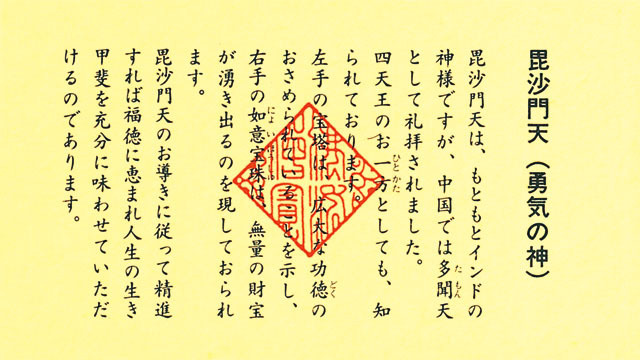 毘沙門天（勇気の神）
毘沙門天は、もともとインドの
神様ですが、中国では多聞天
として礼拝されました。
四天王のお一方としても、知
られております。
左手の宝塔は、広大な功徳の
おさめられていることを示し、
右手の如意宝珠は、無量の財宝
が湧き出るのを現しておられ
ます。
毘沙門天のお導きに従って精進
すれば福徳に恵まれ人生の生き
甲斐を充分に味わせていただ
けるのであります。